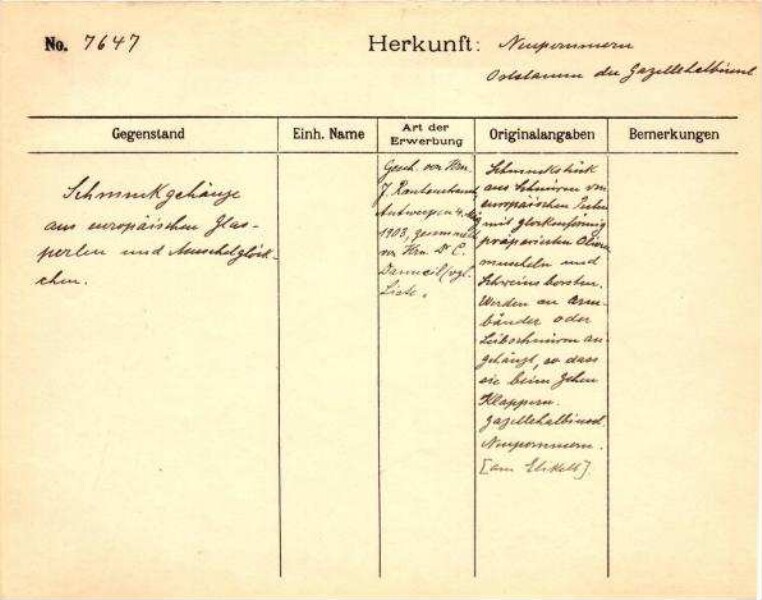 No. 7647
Herkunft: Neupommern
Oststamm der Gazellehalbinsel
Gegenstand
Einh. Name
Art der Erwerbung
Originalangaben
Bemerkungen
Schmuckgehänge
aus europäischen Glas-
perlen und Muschelglöck-
chen.
Gesch. von Hrn.
J. Rautenstrauch,
Antwerpen 4. Mai
1903, gesammelt
von Hrn. Dr C.
Danneil (vgl.
Liste.
Schmuckstück
aus Schnüren von
europäischen Perlen
mit glockenförmig
präparierten Oliven
muscheln und
Schweinsborsten.
Werden an Arm-
bänder oder
Leibschnüren an-
gehängt, so dass
sie beim Gehen
Klappern.
Gazellehalbinsel.
Neupommern.
[am